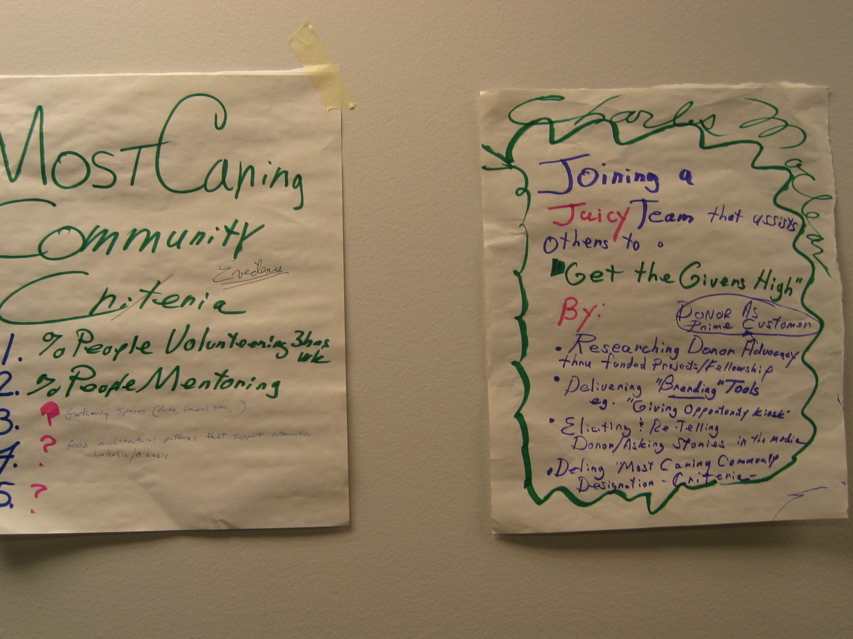 Most Caring
Community
Evidence
Criteria
1. % People Volunteering 3hrs
wk
2. % People Mentoring
3. ? Gathering Spaces
4. ? Good patterns that support interaction
Walkable/Bikable
5. ?
Charles MacLean
Joining a
Juicy Team that assists
Others to:
"Get the Givers High"
By:
Donor As
Prime Customer
• Researching Donor Advocacy
thru funded Projects/Fellowship
• Delivering "Branding" Tools
eg. "Giving Opportunity Kiosk"
• Eliciting & Re-Telling
Donor/Asking Stories in the media
• Defing "Most Caring Community
Designation - Criteria -